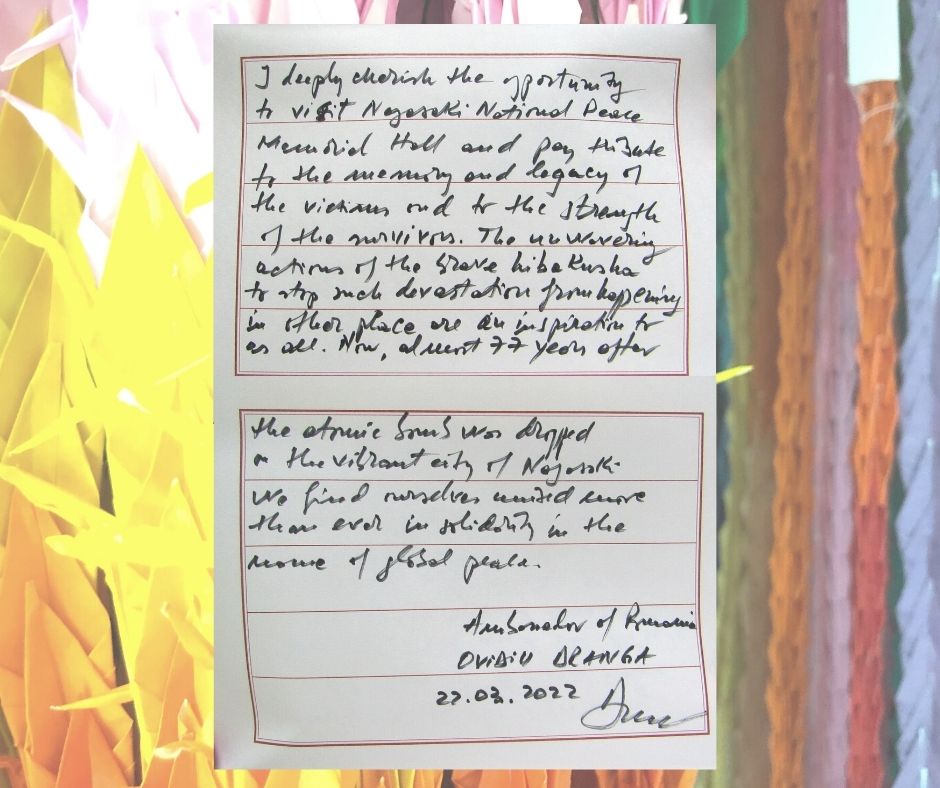 I deeply cherish the opportunity
to visit Nagasaki National Peace
Memorial Hall and pay tribute
to the memory and legacy of
the victims and to the strength
of the survivors. The unwavering
actions of the brave hibakusha
to stop such devastation from happening
in other place are an inspiration to
us all. Now, almost 77 years after
the atomic bomb was dropped
on the vibrant city of Nagasaki
we find ourselves united more
than ever in solidarity in the
name of global peace.
Ambassador of Romania
OVIDIU DRANGA
22.03.2022